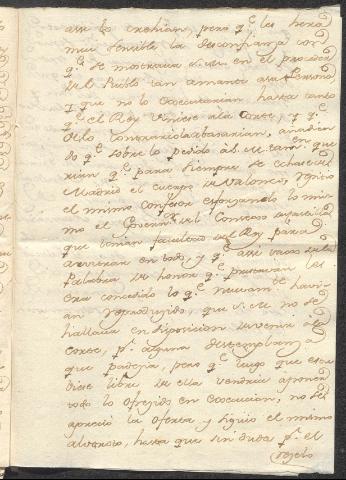 assi lo crehian, pero q.e les hera
mui sensible la desconfianza con
q.e se mostraua S.M. en el proceder
del Pueblo tan amante a su Persona
y que no lo executarian, hasta tanto
q.e el Rey viniese a la Corte, y q.e
de lo contrario la abrasarian, añadien
do q.e sobre lo pedido a S.M. tambien que
rian q.e para siempre se echase de
Madrid el cuerpo de Valonas,
el mismo Confesor esforzando lo mis
mo el Governador del Consejo
que toman facultad del Rey para
en todo, y q.e assi vajo de la
Palabra de honor q.e prestavan les
era concedido lo q.e nuevam.te havi
an reproducido, que S.M. no se
hallaua en disposicion de venir a la
Corte, p.r alguna destemplanza
que padezia, pero q.e luego que estu
biese libre de ella vendria a poner
todo lo ofrezido en execucion, no se
apreció la oferta, y siguió el mismo
alvoroto, hasta que sin duda p.r el